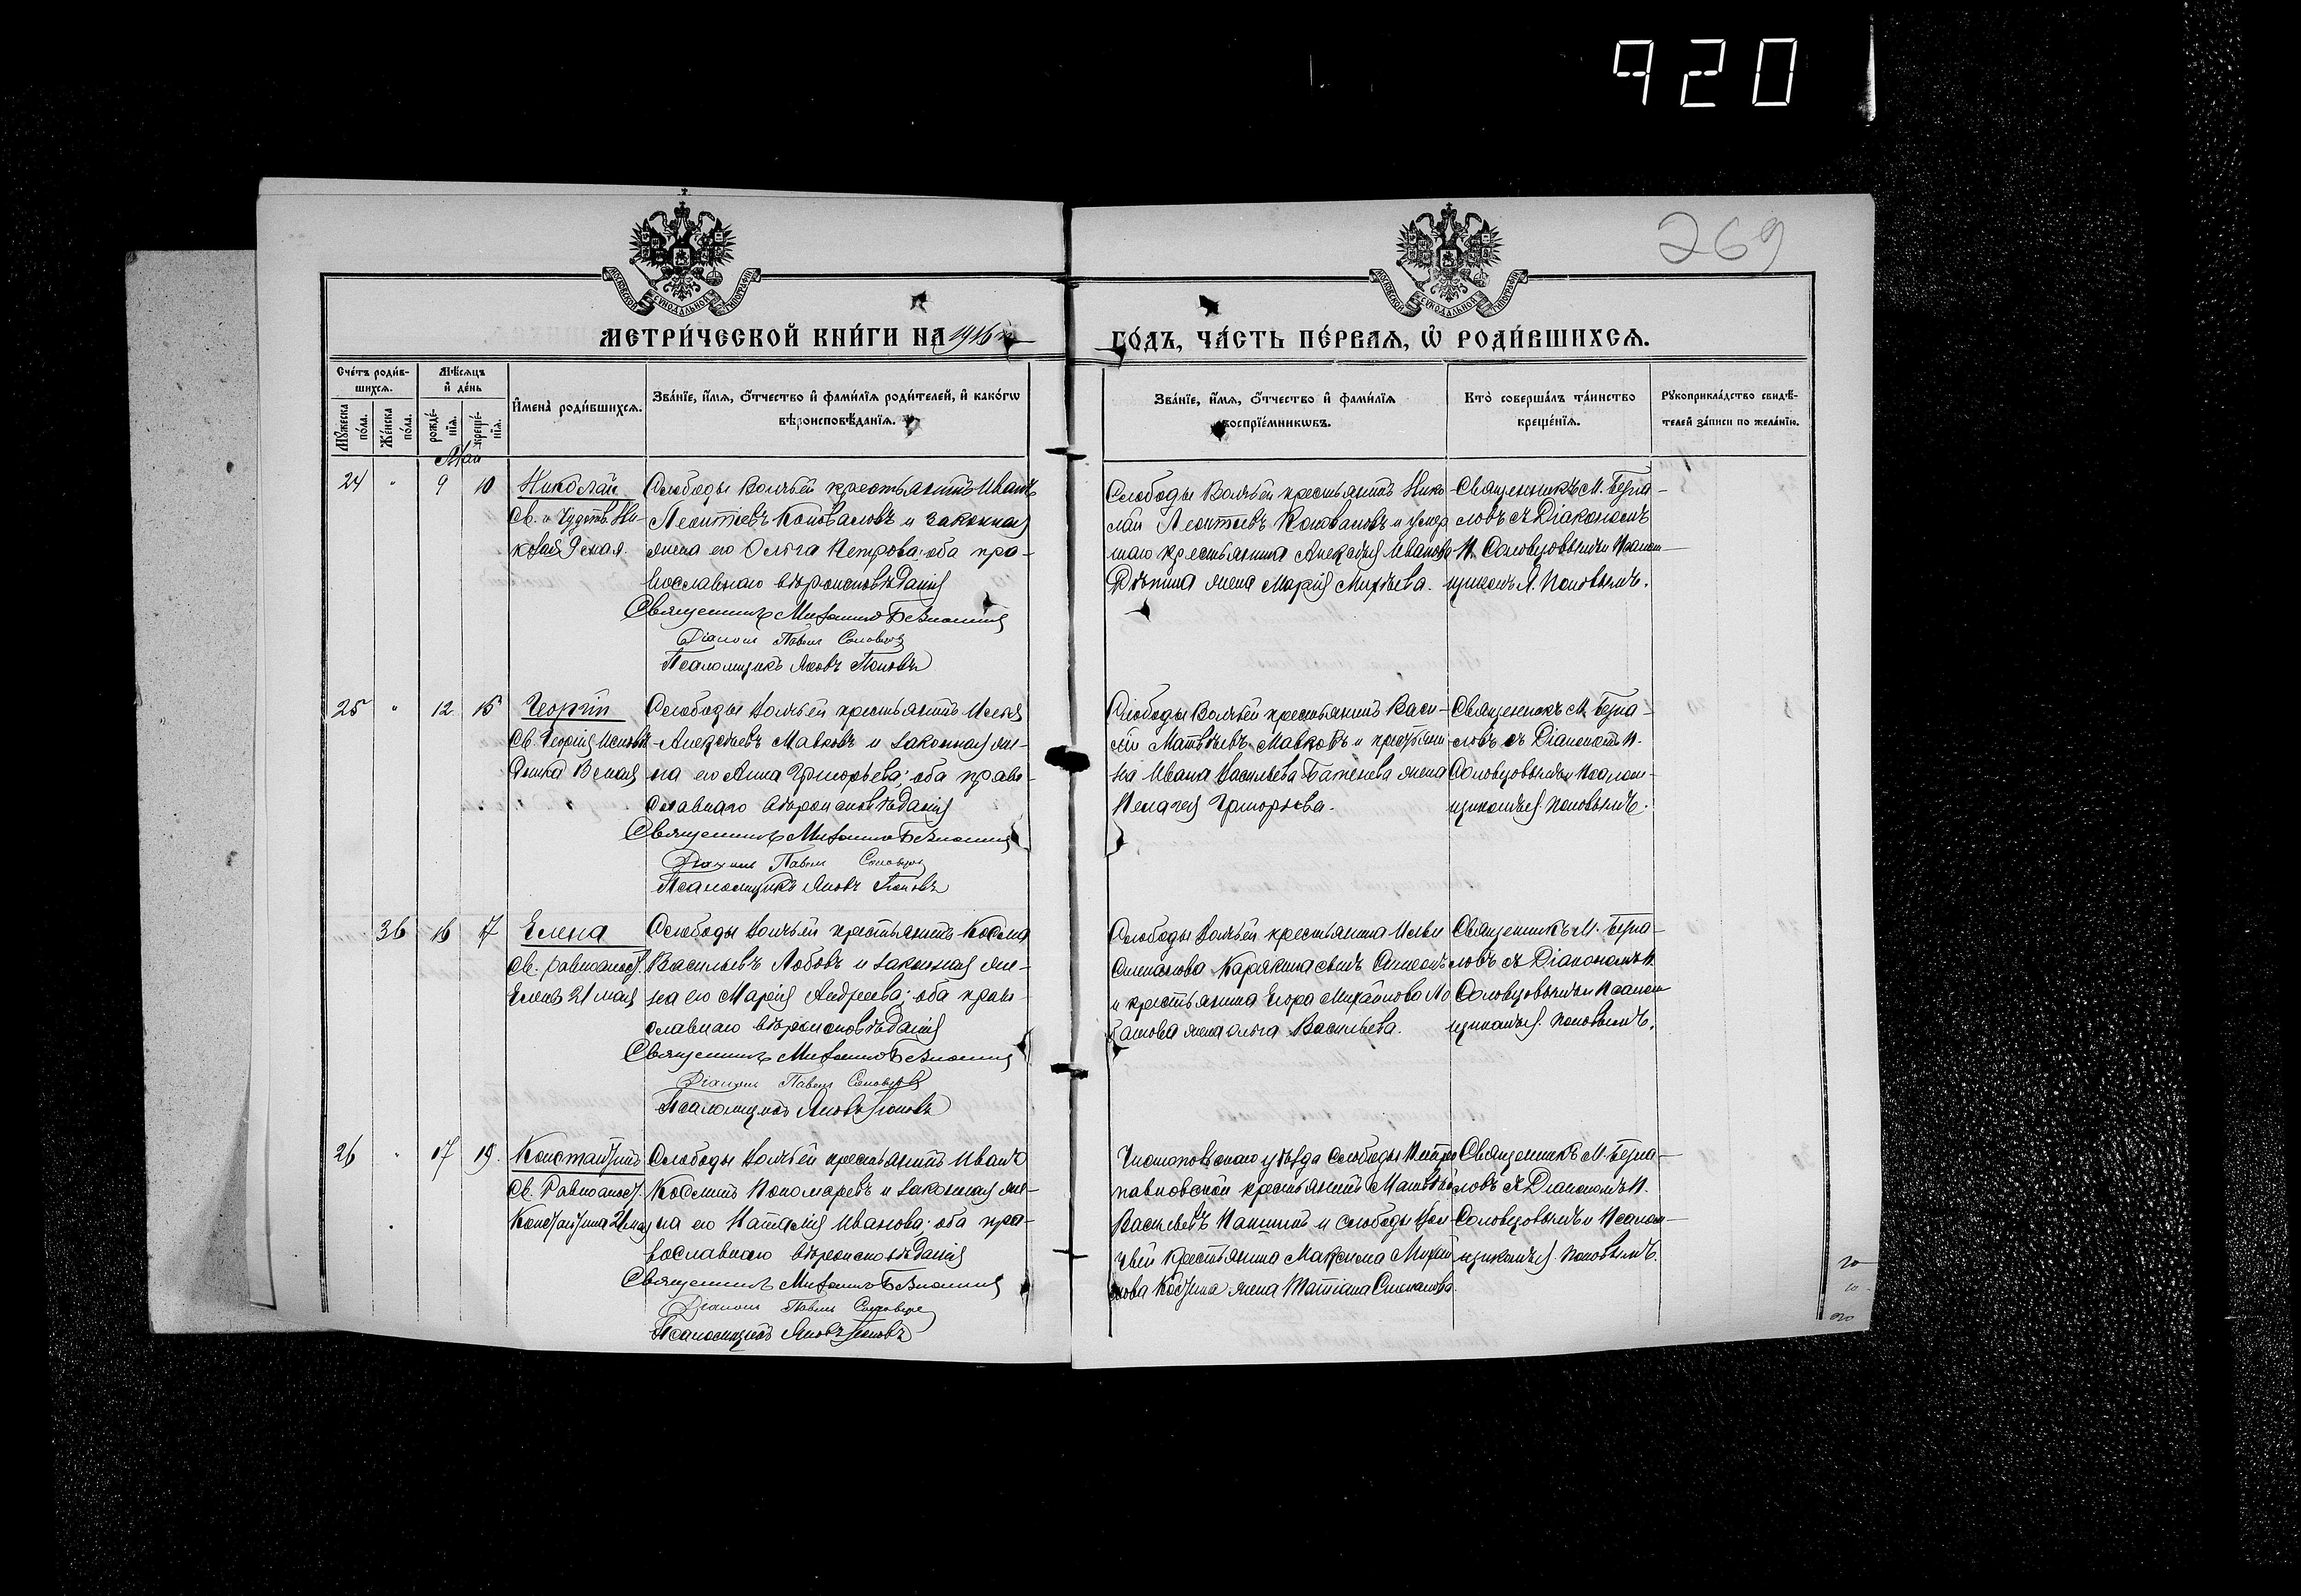 920
269
МОСКОВСКОЙ СѴНОДАЛЬНОЙ ТИПОГРАФІИ
МОСКОВСКОЙ СѴНОДАЛЬНОЙ ТИПОГРАФІИ
МЕТРИ́ЧЕСКОЙ КНИ́ГИ НА 1916
ГО́ДЪ, ЧА́СТЬ ПЕ́РВАѦ, Ѡ҆ РОДИ́ВШИХСѦ.
Сче́тъ роди́в-
шихсѧ.
Мꙋ́жеска по́ла.
Же́нска по́ла.
Мѣ́сѧцъ
и҆ де́нь
рожде́-нїѧ.
креще́-нїѧ.
И҆мена̀ роди́вшихсѧ.
Зва́нїе, и҆́мѧ, ѻ҆́тчество и҆ фами́лїѧ роди́телей, и҆ како́гѡ
вѣроисповѣ́данїѧ.
Зва́нїе, и҆́мѧ, ѻ҆́тчество и҆ фами́лїѧ
воспрїе́мникѡвъ.
Кто̀ соверша́лъ та́инство
креще́нїѧ.
Рꙋкоприкла́дство свидѣ́-
телей за́писи по жела́нїю.
Май
24 " 9 10 Николай
Св. и Чудотв. Ни-
колая 9 мая.
Слободы Волчьей крестьянинъ Иванъ
Леонтіевъ Коноваловъ и законная
жена его Ольга Петрова; оба пра-
вославнаго вѣроисповѣданія
Священникъ Михаилъ Безпаловъ
Діаконъ Павелъ Соловцовъ
Псаломщикъ Яковъ Поповъ
Слободы Волчьей крестьянинъ Нико-
лай Леонтьевъ Коноваловъ и умер
шаго крестьянина Алексѣя Иванова
жена Марія Михѣева.
Священникъ М. Безпа-
ловъ съ Діакономъ
П. Соловцовымъ и Псалом-
щикомъ Я. Поповымъ.
25 " 12 15 Георгій
Св. Георгія Исповѣ-
дника 13 мая
Слободы Волчьей крестьянинъ Илья
Алексѣевъ Мавковъ и законная же-
на его Анна Григорьева; оба право-
славнаго вѣроисповѣданія
Священникъ Михаилъ Безпаловъ
Діаконъ Павелъ Соловцовъ
Псаломщикъ Яковъ Поповъ
Слободы Волчьей крестьянинъ Васи-
лій Матвѣевъ Мавковъ и крестьяни
на Ивана Васильева Батенева жена
Пелагея Григорьева.
Священникъ М. Безпа-
ловъ съ Діакономъ П.
Соловцовымъ и Псалом-
щикомъ Я. Поповымъ.
36 16 17 Елена
Св. равноапост.
Елены 21 мая
Слободы Волчьей крестьянинъ Косма
Васильевъ Лобовъ и законная же-
на его Марія Андреева; оба право-
славнаго вѣроисповѣданія
Священникъ Михаилъ Безпаловъ
Діаконъ Павелъ Соловцовъ
Псаломщикъ Яковъ Поповъ
Слободы Волчьей крестьянина Ильи
Степанова Карякина сынъ
и крестьянина Егора Михайлова
жена Ольга Васильева.
Священникъ М. Безпа-
ловъ съ Діакономъ П.
Соловцовымъ и Псалом
щикомъ Я. Поповымъ.
26 " 17 19. Константинъ
Св. Равноапост.
Константина 21 мая
Слободы Волчьей крестьянинъ Иванъ
Косминъ Пономаревъ и законная же-
на его Наталія Иванова; оба пра-
вославнаго вѣроисповѣданія
Священникъ Михаилъ Безпаловъ
Діаконъ Павелъ Соловцовъ
Псаломщикъ Яковъ Поповъ
Чистопольскаго уѣзда Слободы Петро
павловской крестьянинъ Матвѣй
Васильевъ и слободы Вол
чьей крестьянина Максима Михай
лова жена Татіана Степанова.
Священникъ М. Безпа-
ловъ съ Діакономъ П.
Соловцовымъ и Псалом-
щикомъ Я. Поповымъ.